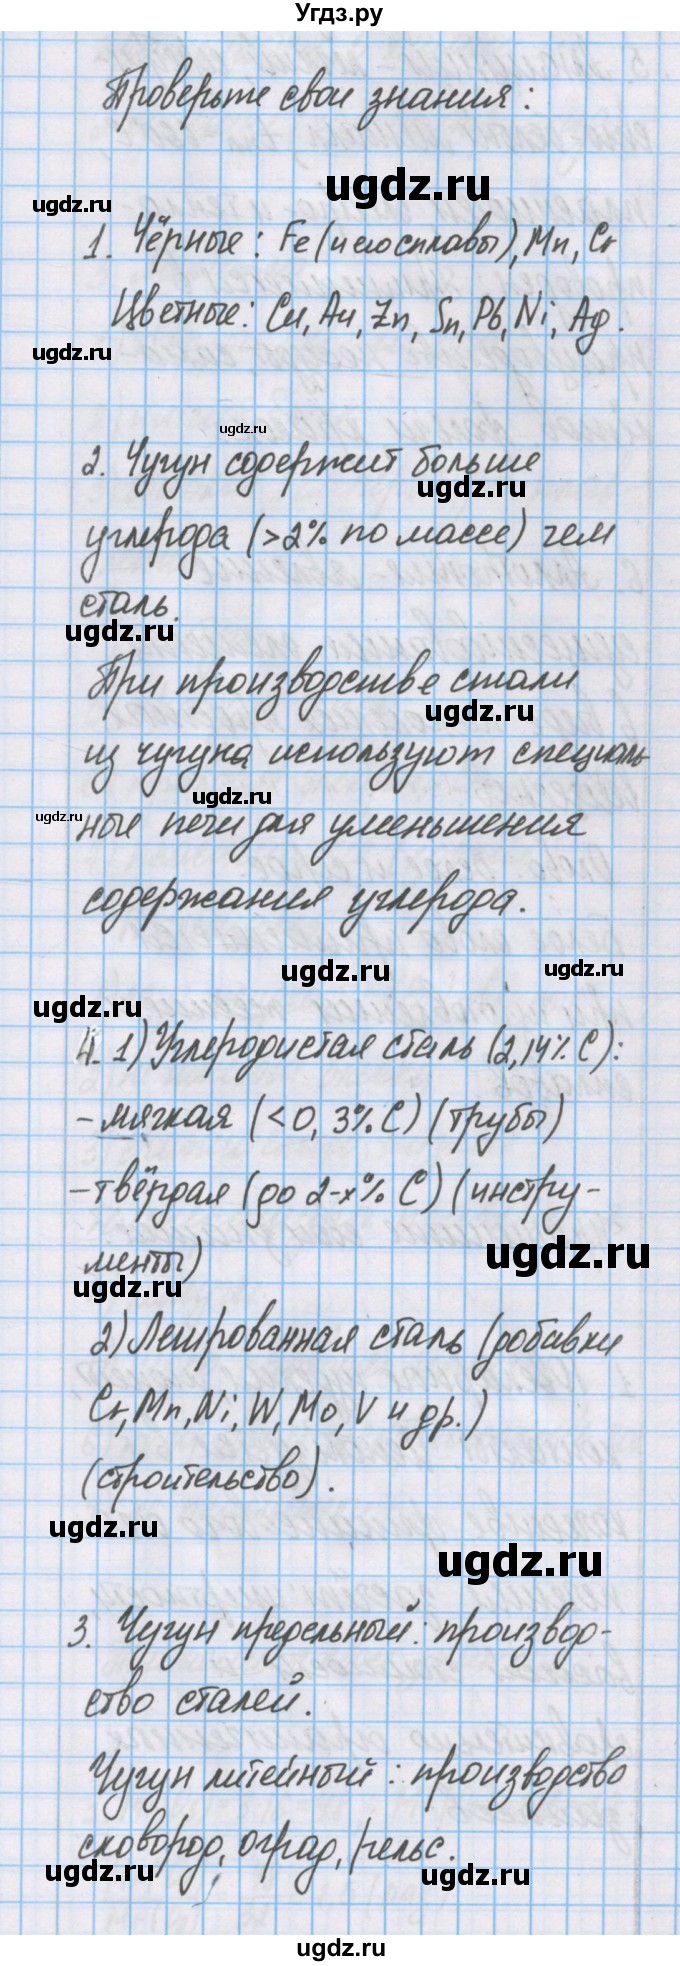 Угдз.ру
Проверьте свои знания:
ugdz.ru
ugdz.ru
1. Чёрные: Fe (и его сплавы), Mn, Cr
Цветные: Cu, Au, Zn, Sn, Pb, Ni, Ag.
ugdz.ru
ugdz.ru
2. Чугун содержит больше
ugdz.ru
углерода (>2% по массе) чем
сталь.
ugdz.ru
При производстве стали
ugdz.ru
из чугуна используют специаль-
ugdz.ru
ugdz.ru
ные печи для уменьшения
содержания углерода.
ugdz.ru
ugdz.ru
ugdz.ru
4. 1) Углеродистая сталь (2,14% C):
- мягкая (<0,3% C) (трубы)
- твёрдая (до 2-х% C) (инстру-
ugdz.ru
менты)
ugdz.ru
2) Легированная сталь (добавки
Cr, Mn, Ni, W, Mo, V и др.)
(строительство).
ugdz.ru
ugdz.ru
3. Чугун предельный: производ-
ство сталей.
Чугун литейный: производство
сковород, оград, рельс.
ugdz.ru
ugdz.ru
ugdz.ru